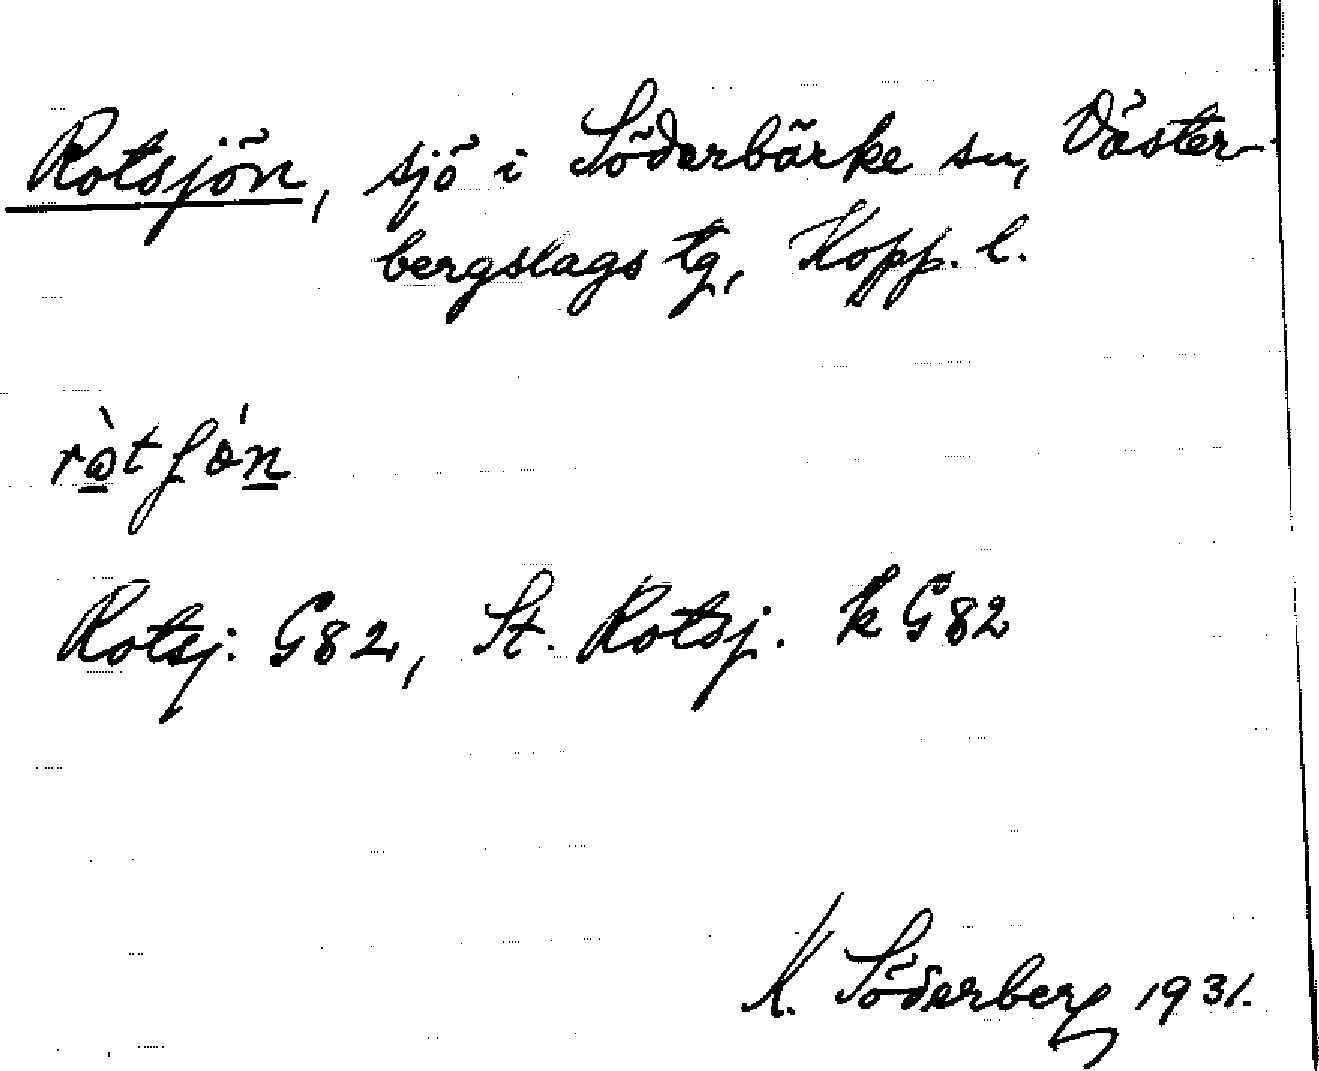 Rotsjön, sjö i Söderbärke sn, Väster-
bergslags tg, Kopp. l.
Rotsj: G82, St. Rotsj. k G82
K. Söderberg 1931.